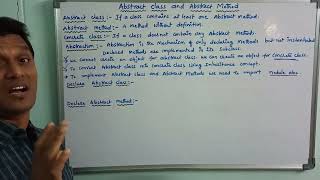 Abstract Class and Abstract Method
Abstract class:- If a class contains at least one Abstract method.
Abstract method:- A method without definition.
Concrete class:- If a class doesnot contain any Abstract methods.
Abstraction:- Abstraction is the Mechanism of only declaring Methods but not implemented
declared methods are implemented in its Subclass.
we cannot create an object for Abstract class. we can create an object for Concrete class.
To convert Abstract class into concrete class Using Inheritance concept.
To implement Abstract class and Abstract Methods we need to import Module abc.
Declare Abstract class:-
Declare Abstract method:-